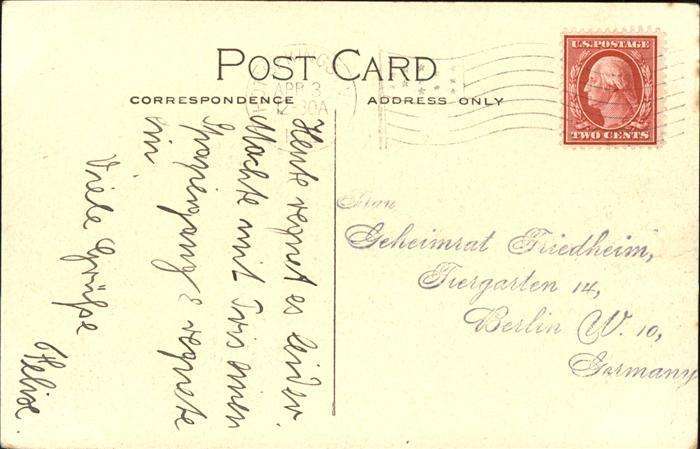 POST CARD
CORRESPONDENCE
ADDRESS ONLY
APR 3
30A
U.S. POSTAGE
TWO CENTS
Heute regnet es leider.
Machte mit Iris einen
Spaziergang & regnete
ein.
Viele Grüße
Frau
Geheimrat Friedheim,
Tiergarten 14,
Berlin W. 10,
Germany